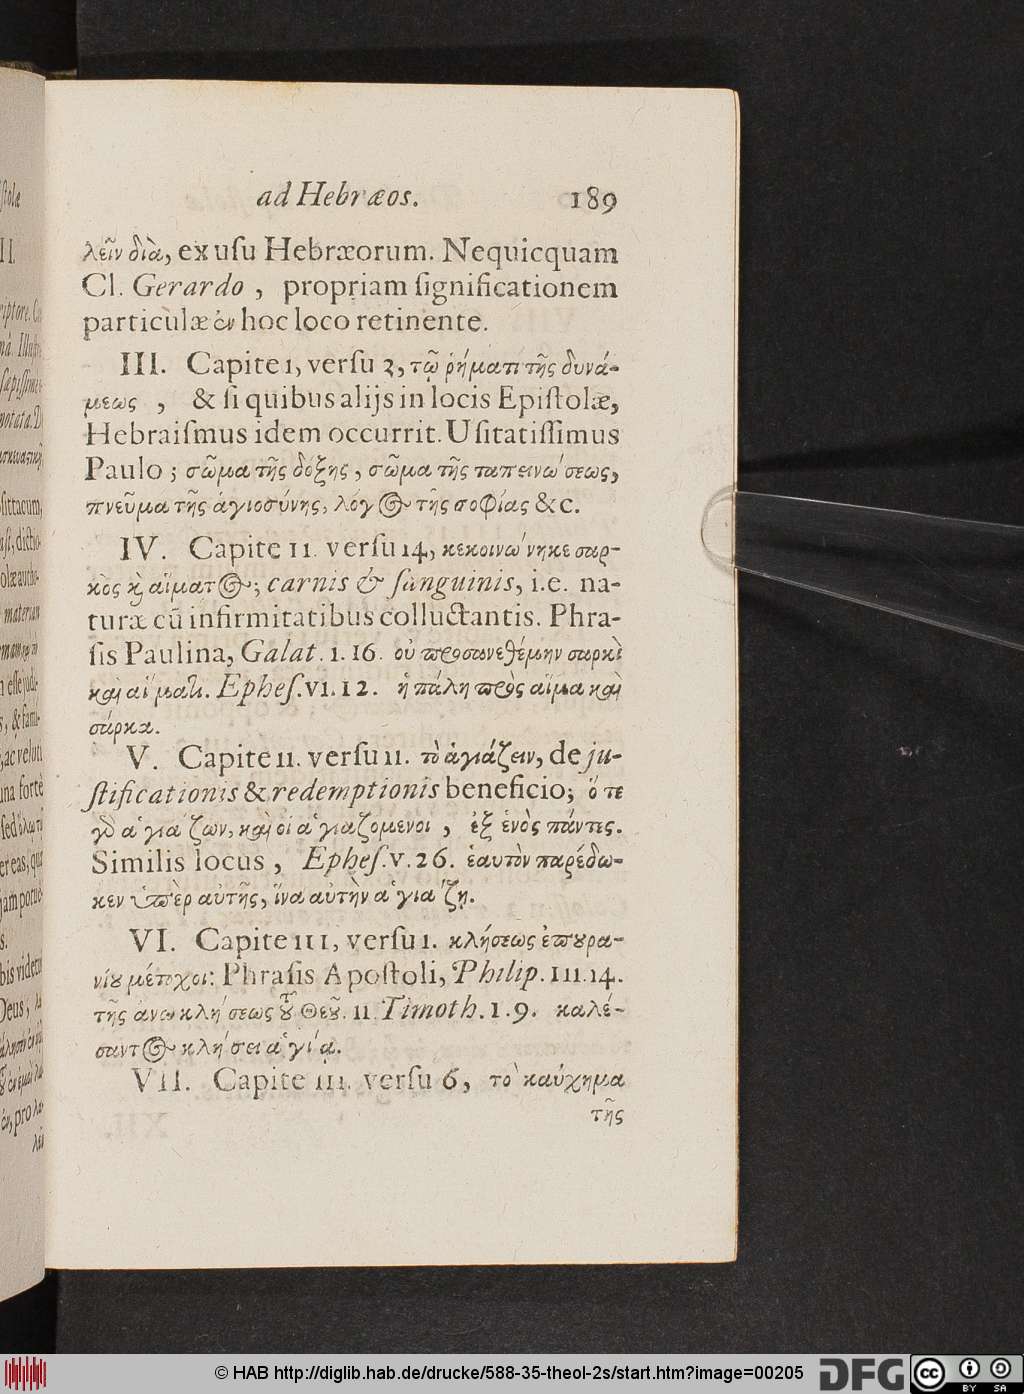 ad Hebræos. 189
λεῖν διὰ, ex uſu Hebræorum. Nequicquam
Cl. Gerardo , propriam ſignificationem
particulæ ἐν hoc loco retinente.
III. Capite 1, verſu 3, τῷ ῥήματι τῆς δυνά-
μεως , & ſi quibus alijs in locis Epiſtolæ,
Hebraiſmus idem occurrit. Uſitatiſſimus
Paulo ; σῶμα τῆς δόξης , σῶμα τῆς ταπεινώσεως,
πνεῦμα τῆς ἁγιοσύνης, λόγος τῆς σοφίας &c.
IV. Capite II. verſu 14, κεκοινώνηκε σαρ-
κὸς καὶ αἵματος; carnis & ſanguinis, i.e. na-
turæ cū infirmitatibus colluctantis. Phra-
ſis Paulina, Galat. 1. 16. οὐ προσανεθέμην σαρκὶ
καὶ αἵματι. Epheſ. VI. 12. ἡ πάλη πρὸς αἷμα καὶ
σάρκα.
V. Capite II. verſu 11. τὸ ἁγιάζειν, de ju-
ſtificationis & redemptionis beneficio; ὅ τε
γὸ ἁγιάζων, καὶ οἱ ἁγιαζόμενοι , ἐξ ἑνὸς πάντες.
Similis locus , Epheſ. V. 26. ἑαυτὸν παρέδω-
κεν ὑπὲρ αὐτῆς, ἵνα αὐτὴν ἁγιάζῃ.
VI. Capite III, verſu 1. κλήσεως ἐπουρα-
νίου μέτοχοι: Phraſis Apoſtoli, Philip. III. 14.
τῆς ἄνω κλήσεως τοῦ Θεοῦ. II Timoth. 1. 9. καλέ-
σαντος κλήσει ἁγίᾳ.
VII. Capite III. verſu 6, τὸ καύχημα
τῆς
© HAB http://diglib.hab.de/drucke/588-35-theol-2s/start.htm?image=00205
DFG
cc BY SA